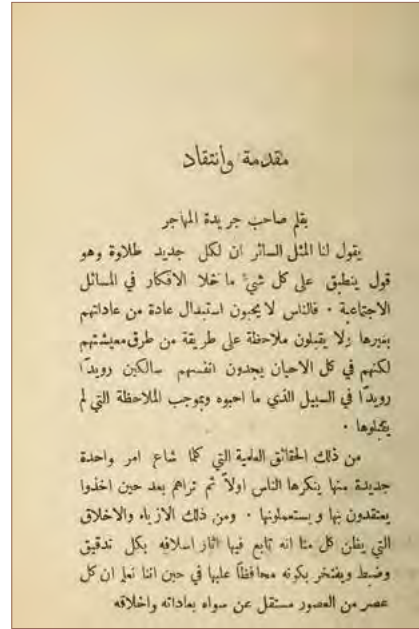 مقدمة وأنتقاد
بقلم صاحب جريدة المهاجر
يقول لنا المثل السائر ان لكل جديد طلاوة وهو
قول ينطبق على كل شيء ما خلا الافكار في المسائل
الاجتماعية ٠ فالناس لا يحبون استبدال عادة من عاداتهم
بغيرها ولا يقبلون ملاحظة على طريقة من طرق معيشتهم
لكنهم في كل الاحيان يجدون انفسهم سالكين رويدًا
رويدًا في السبيل الذي ما احبوه وبموجب الملاحظة التي لم
يقبلوها ٠
من ذلك الحقائق العلمية التي كلما شاع امر واحدة
جديدة منها ينكرها الناس اولاً ثم تراهم بعد حين اخذوا
يعتقدون بها ويستعملونها ٠ ومن ذلك الازياء والاخلاق
التي يظن كل منا انه تابع فيها اثار اسلافه بكل تدقيق
وضبط ويفتخر بكونه محافظًا عليها في حين اننا نعلم ان كل
عصر من العصور مستقل عن سواه بعاداته واخلاقه